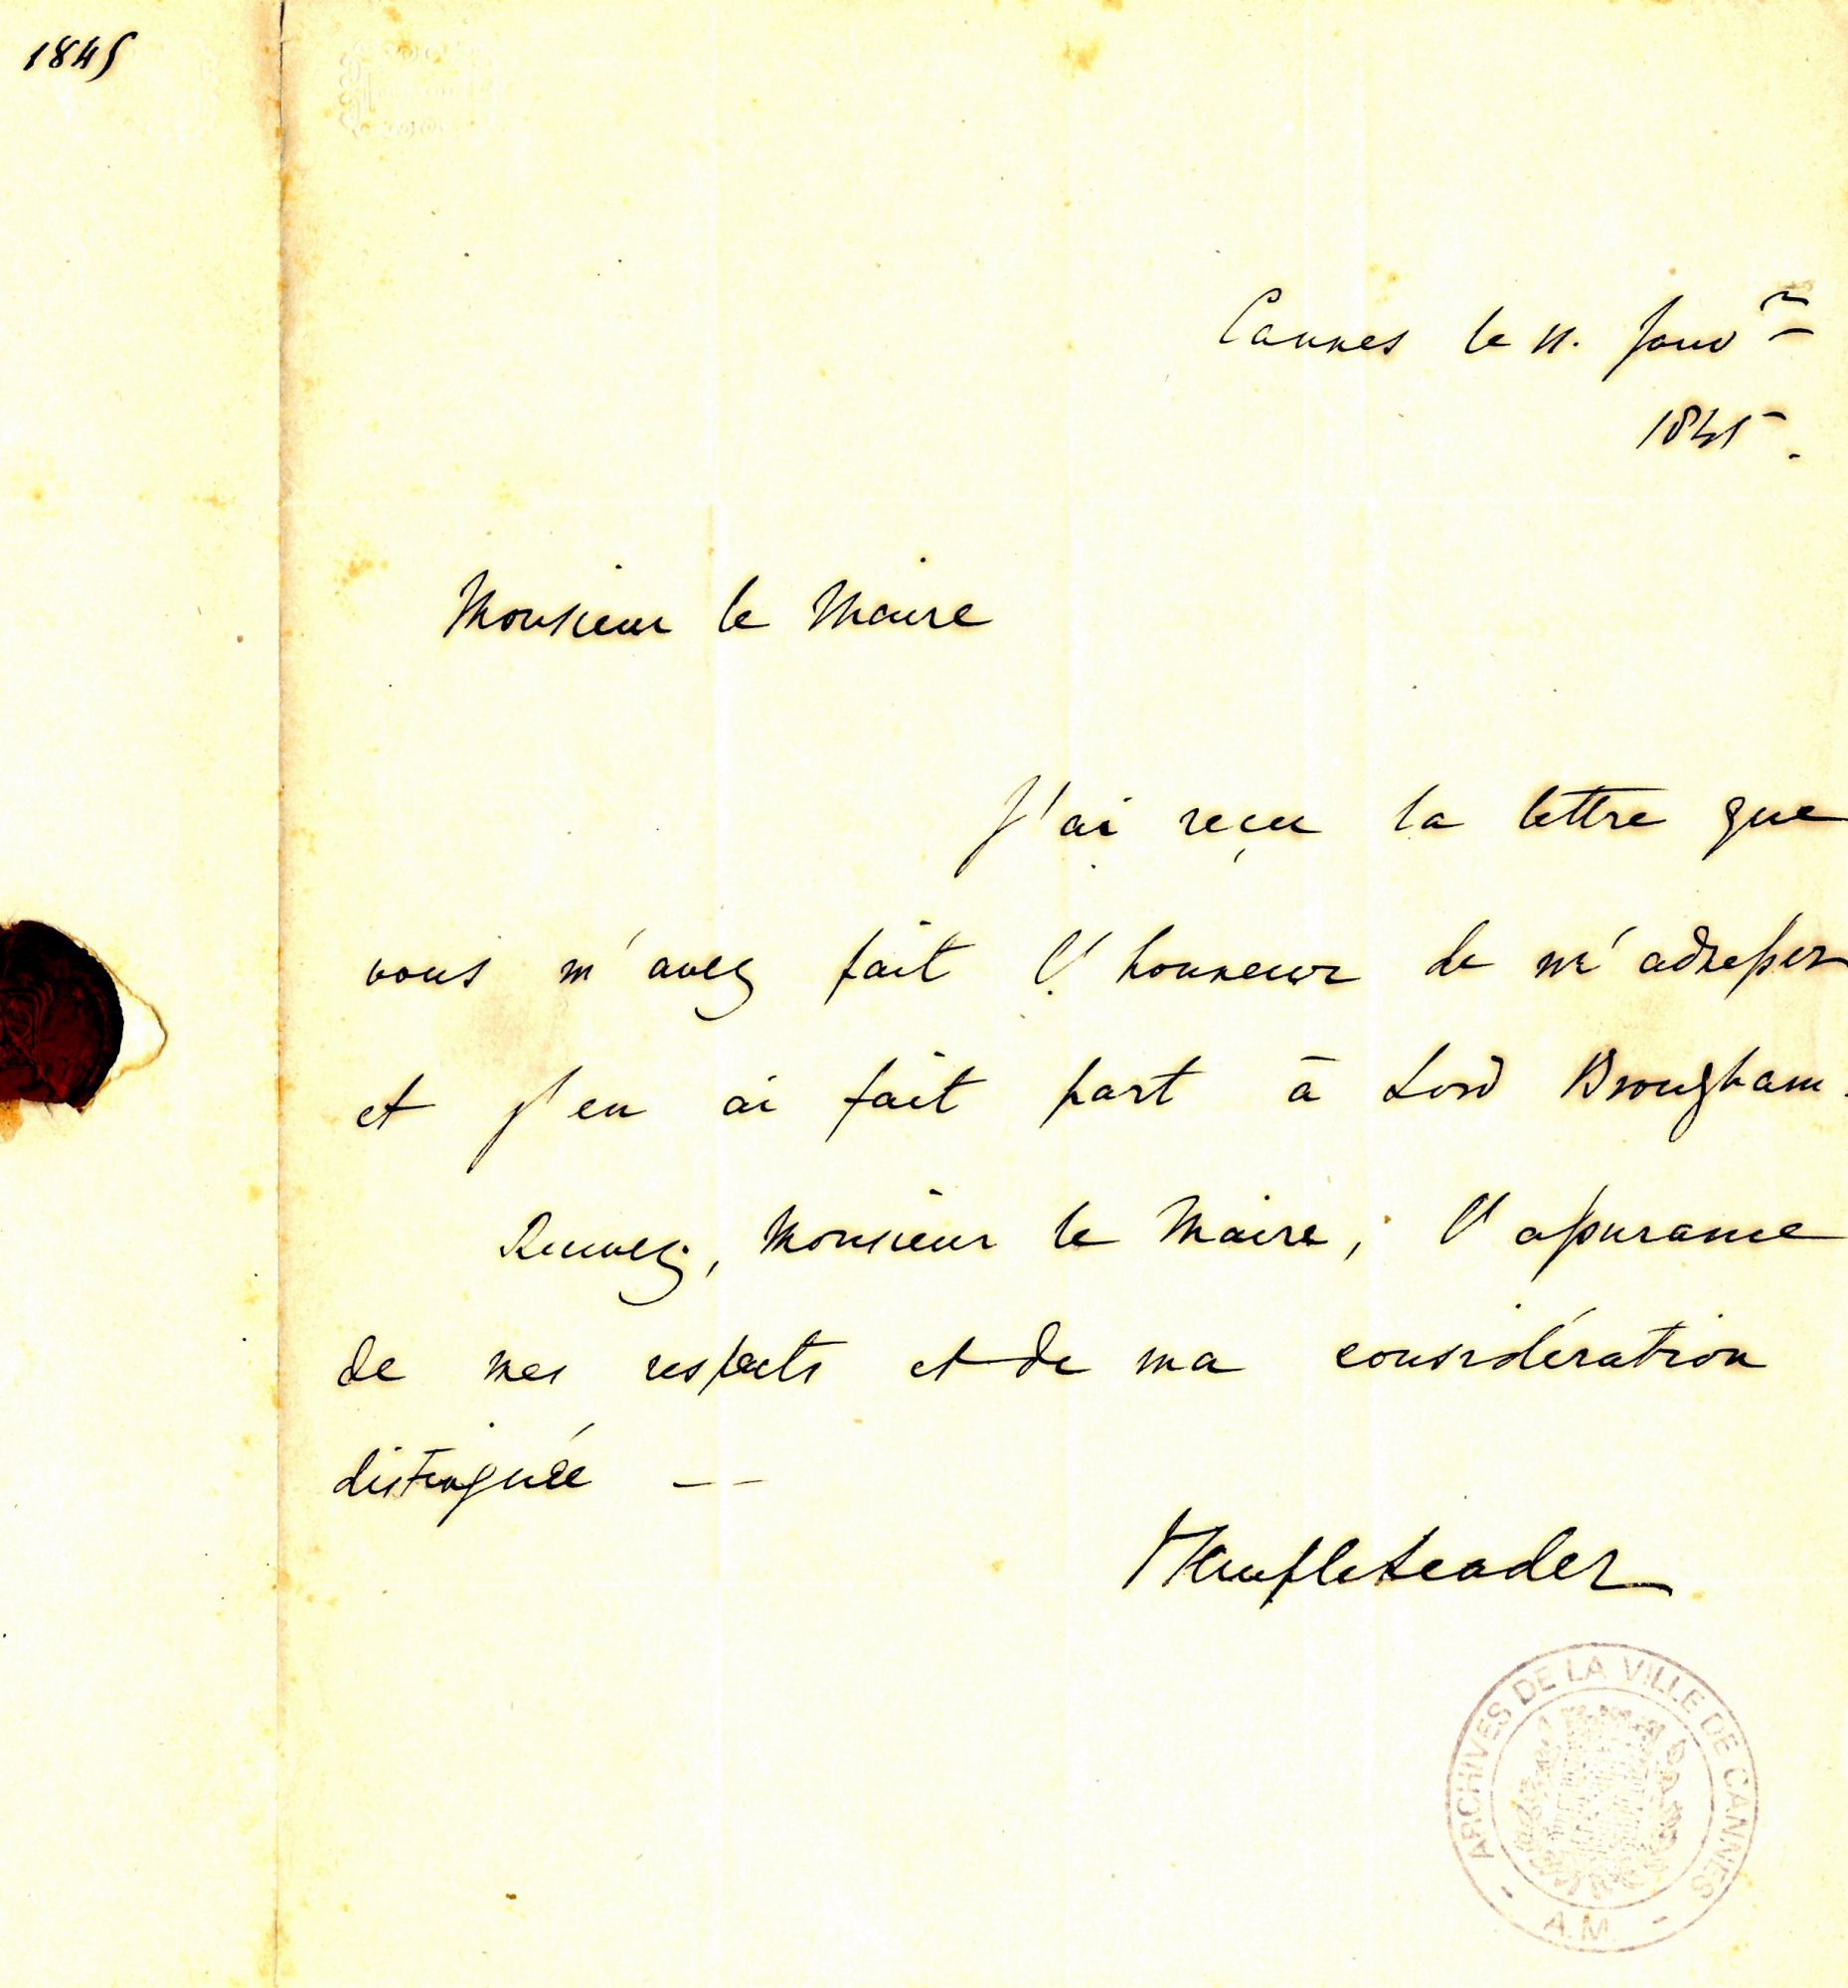 1845
Cannes le 11. Janv^r
1845.
Monsieur le Maire
J'ai reçu la lettre que
vous m'avez fait l'honneur de m'adresser
et j'en ai fait part à Lord Brougham.
Recevez, Monsieur le Maire, l'assurance
de mes respects et de ma considération
distinguée --
Temple Leader
ARCHIVES DE LA VILLE DE CANNES
- A.M. -